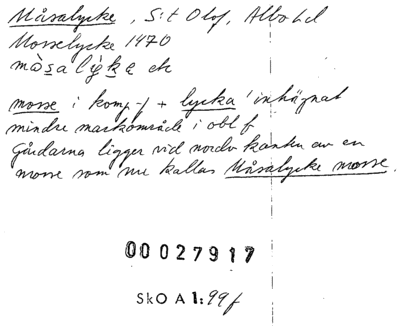 Måsalycke, S:t Olof, Albo hd
Mosselycke 1970
måsalycke etc
mosse i komp-f + lycka 'inhägnat
mindre markområde i obl f
Gårdarna ligger vid nordv kanten av en
mosse som nu kallas Måsalycke mosse.
00027917
SkO A 1:99f